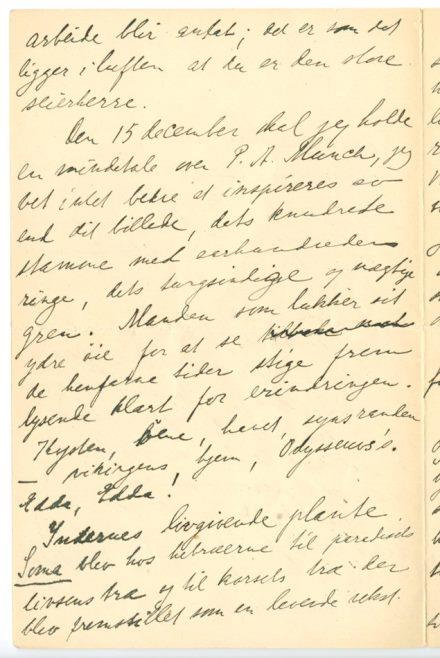 arbeide blir antat; det er som det
ligger i luften at du er den store
seierherre.
Den 15 december skal jeg holde
en mindetale over P. A. Munch, jeg
vet intet bedre at inspireres av
end dit billede, dets knudrede
stamme med aarhundreders
ringe, dets tungsindige og vægtige
gren. Manden som lukker sit
ydre øie for at se
de henfarne tider stige frem
lysende klart for erindringen.
Kysten, øene, havet, synsranden
– vikingens hjem, Odysseus's.
Edda, Edda!
Indernes livgivende plante
Soma blev hos hebræerne til paradisets
livsens træ og til korsets træ der
blev fremstillet som en levende vekst.